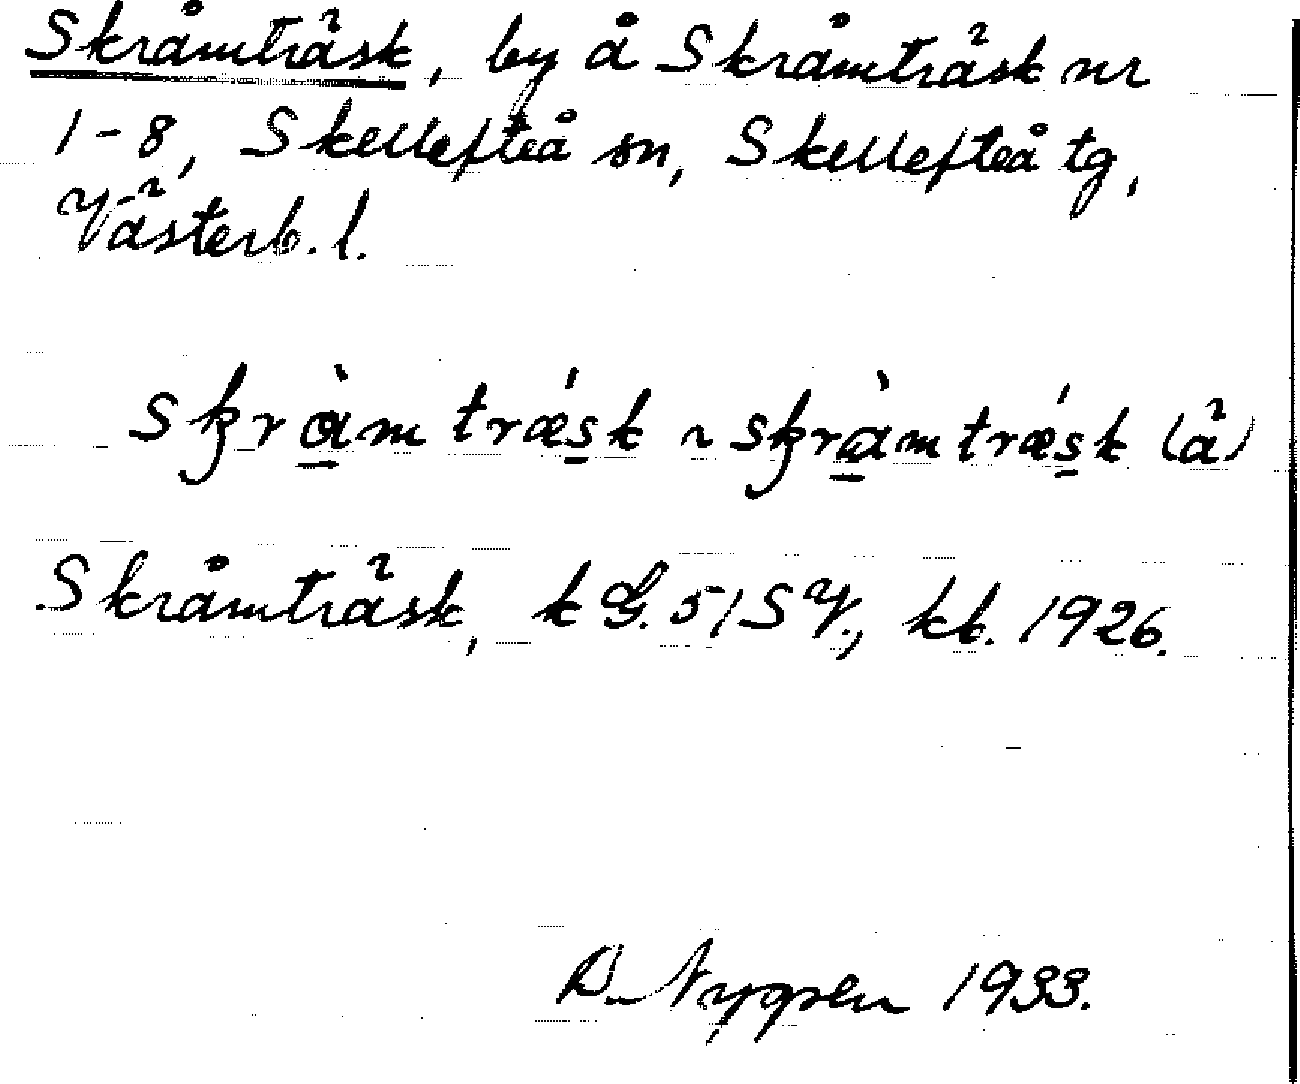 Skråmträsk, by å Skråmträsk nr
1-8, Skellefteå sn, Skellefteå tg,
Västerb. l.
skràmtræ´sk ~ skràmtræ´sk (ä)
Skråmträsk, k G. 51 SV., kb. 1926.
D. Nygren 1933.